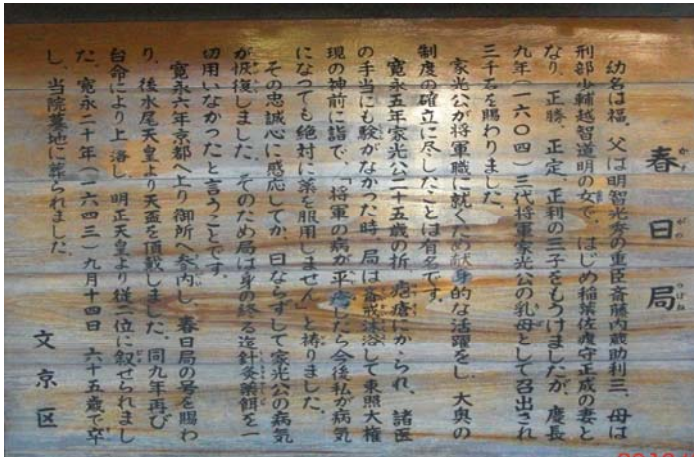 春日局
かすがのつぼね
幼名は福、父は明智光秀の重臣斎藤内蔵助利三、母は
刑部少輔越智道明の女で、はじめ稲葉佐渡守正成の妻と
なり、正勝、正定、正利の三子をもうけましたが、慶長
九年(一六〇四)三代将軍家光公の乳母として召出され
三千石を賜わりました。
家光公が将軍職に就くため献身的な活躍をし、大奥の
制度の確立に尽したことは有名です。
寛永五年家光公二十五歳の折、疱瘡にかゝられ、諸医
の手当にも験がなかった時、局は斎戒沐浴して東照大権
現の神前に詣で、「将軍の病が平癒したら今後私が病気
になっても絶対に薬を服用しません」と祷りました。
その忠誠心に感応してか、日ならずして家光公の病気
が恢復しました。そのため局は身の終る迄針灸薬餌を一
切用いなかったと言うことです。
寛永六年京都へ上り御所へ参内し、春日局の号を賜わ
り、後水尾天皇より天盃を頂戴しました。同九年再び
台命により上洛し、明正天皇より従二位に叙せられまし
た。寛永二十年(一六四三)九月十四日 六十五歳で卒
し、当院墓地に葬られました。
文京区